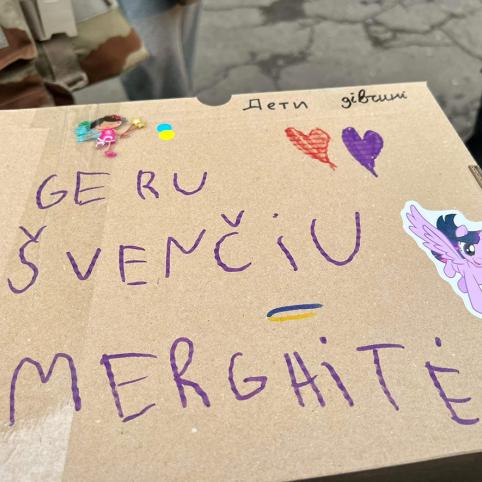 Дети дівчині
GERU
ŠVENČiU
MERGHiTĖ